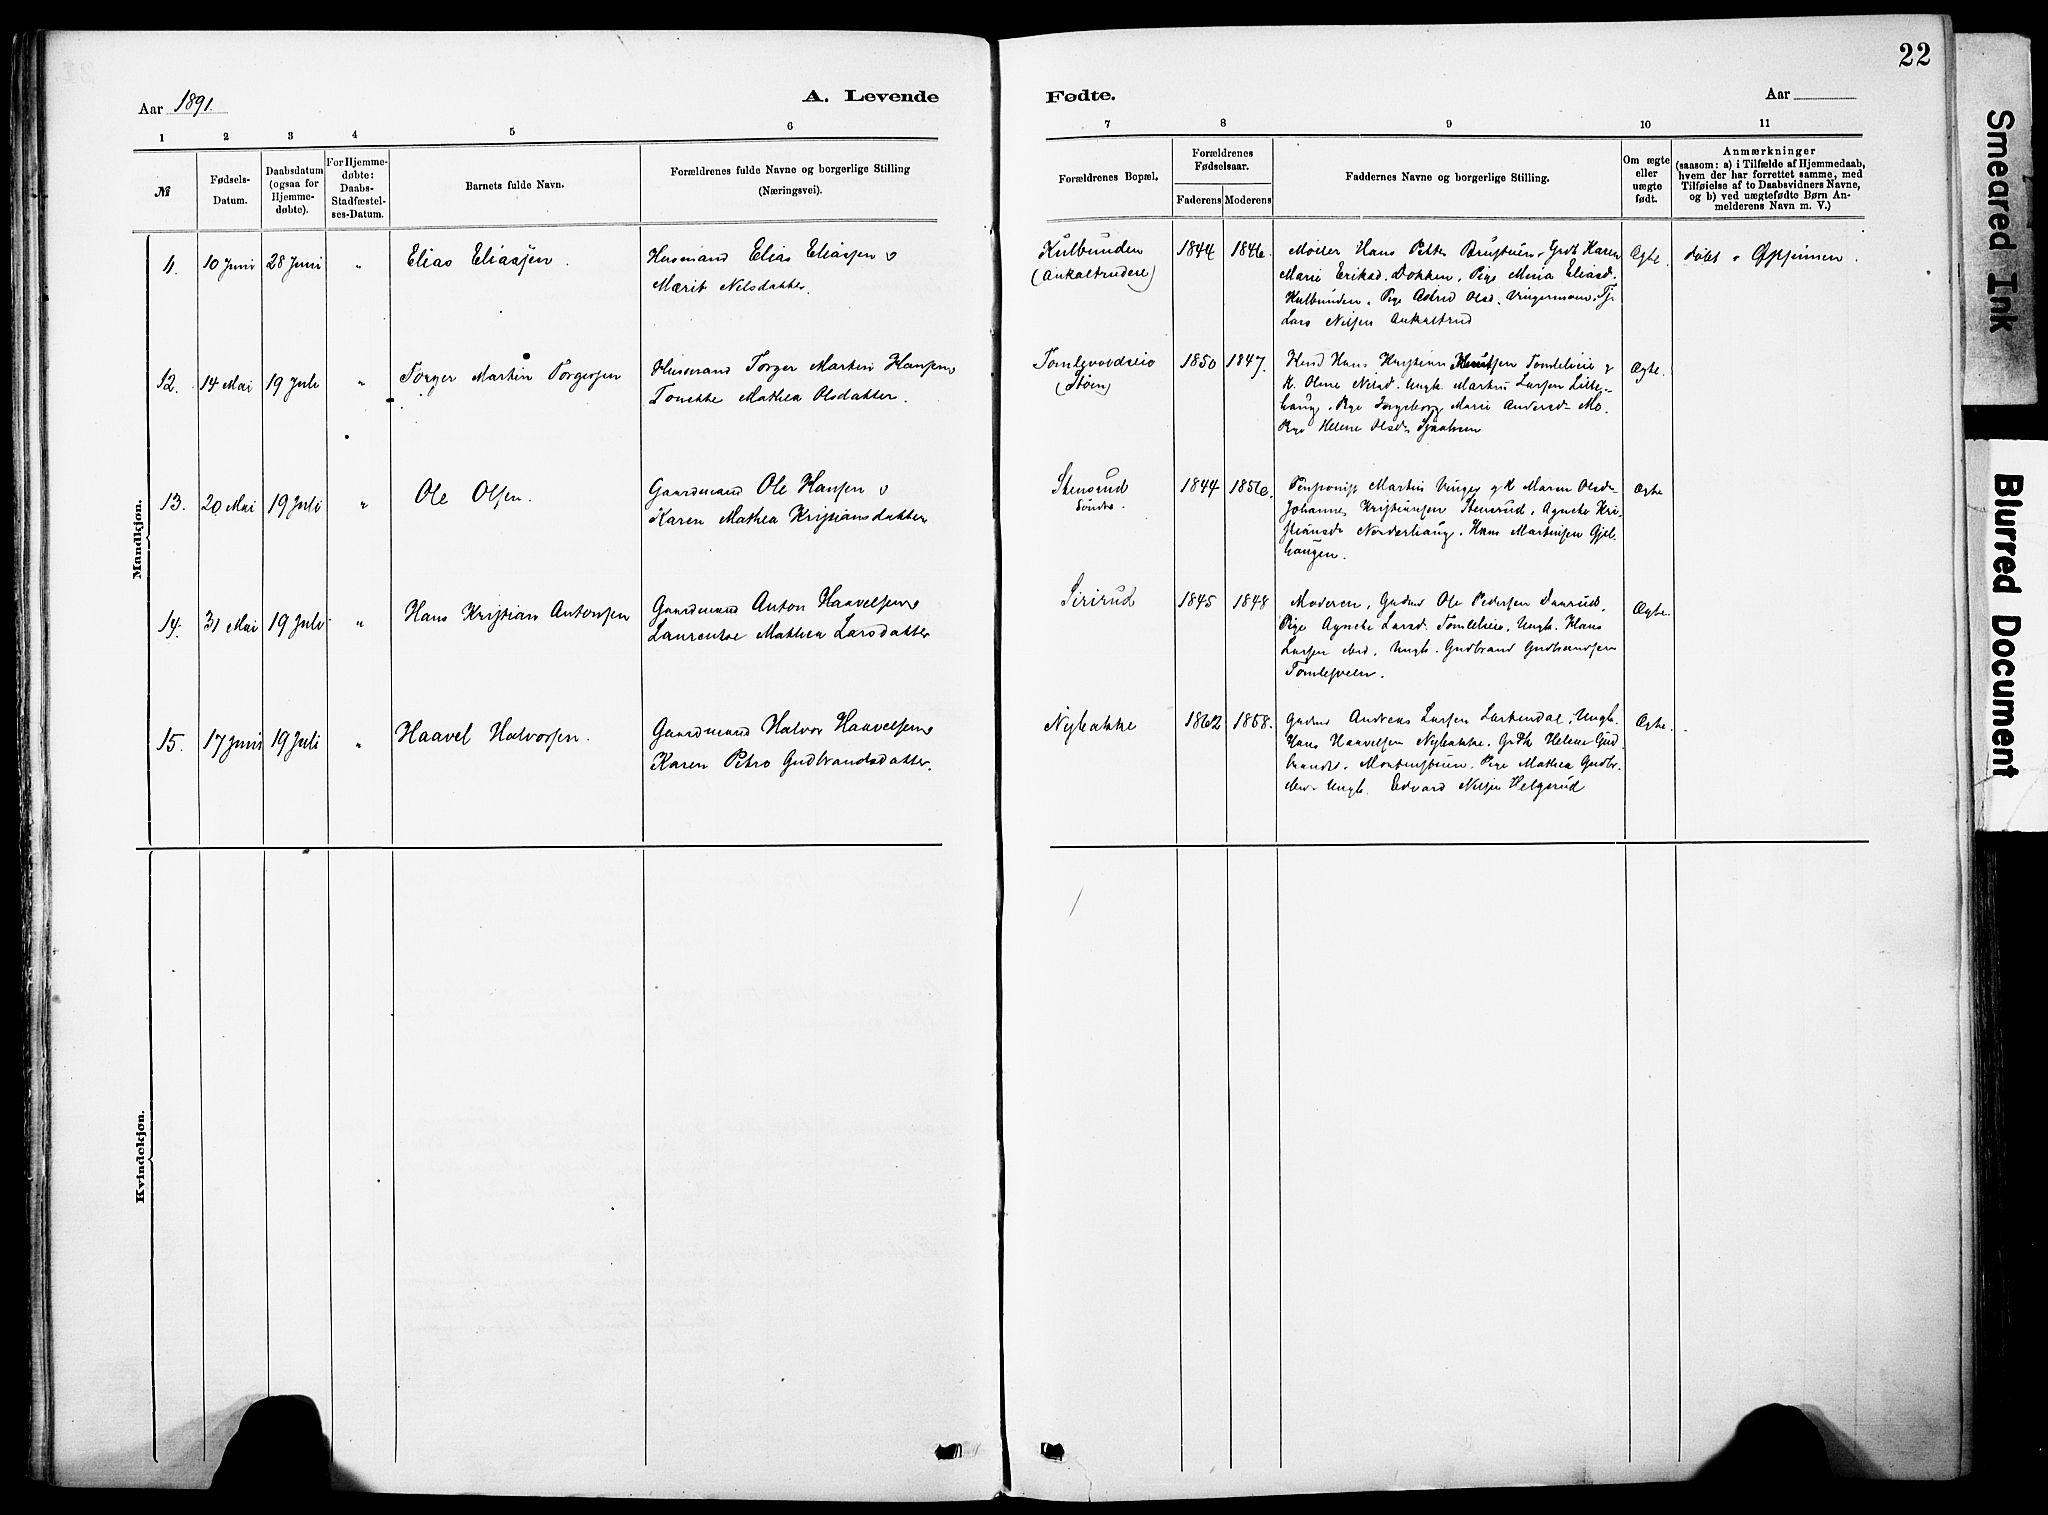 22
Aar 1891.
A. Levende
Fødte.
Aar
1 2 3 4 5 6
7 8 9 10 11
№
Fødsels-Datum.
Daabsdatum (ogsaa for Hjemme-døbte).
For Hjemme-døbte: Daabs-Stadfæstel-ses-Datum.
Barnets fulde Navn.
Forældrenes fulde Navne og borgerlige Stilling
(Næringsvei).
Forældrenes Bopæl.
Forældrenes Fødselsaar.
Faderens Moderens
Faddernes Navne og borgerlige Stilling.
Om ægte eller uægte født.
Anmærkninger
(saasom: a) i Tilfælde af Hjemmedaab,
hvem der har forrettet samme, med
Tilføielse af to Daabsvidners Navne,
og b) ved uægtefødte Børn An-
melderens Navn m. V.)
Mandkjøn.
11. 10 Juni 28 Juni " Elias Eliassen. Husmand Elias Eliassen o
Marit Nilsdatter.
Kulbunden 1844 1846. Moder Hans Petter Grdk Karen Ægte. døbt
(Ankaltrudeie) Marie Eriksd. Dokken, Pige Mina Eliasd.
Kulbunden, Pige Astrid Olsd. Tj.
Lars Nilsen Ankaltrud
12. 14 Mai 19 Juli " Torger Martin Torgersen Husmand Torger Martin Hansen o
Mathea Olsdatter.
(Støen) 1850 1847. Husmd Hans Kristian Knutsen Tomleleie o Ægte.
K. Oline Nilsd. Ungk. Martin Larsen Lille-
haug, Pige Ingeborg Marie Andersd. Mo
Pige Helene Olsd.
13. 20 Mai 19 Juli " Ole Olsen. Gaardmand Ole Hansen o
Karen Mathea Kristiansdatter
Stensrud 1844 1856. Martin Vinger o K Maren Olsd. Ægte
Søndre. Johannes Kristiansen Stensrud, Agnethe Kri-
stiansd. Norderhaug, Hans Martinsen Gjel-
haugen.
14. 31 Mai 19 Juli " Hans Kristian Antonsen Gaardmand Anton Haavelsen o
Laurentse Mathea Larsdatter
Sirirud 1845 1848 Moderen, Gmd Ole Pedersen Daarud, Ægte.
Pige Agnethe Larsd. Tomleleie, Ungk. Hans
Larsen ibid, Ungk. Gudbrand Gudbrandsen
15. 17 Juni 19 Juli " Haavel Halvorsen. Gaardmand Halvor Haavelsen o
Karen Petra Gudbrandsdatter.
Nybakke 1862 1858. Andreas Larsen Ungk. Ægte.
Hans Haavelsen Nybakke, Grdk Helene Gud-
brandsd. Pige Mathea Gudbr.
Ungk. Edvard Nilsen Helgerud
Kvindekjøn.
Smeared Ink
Blurred Document